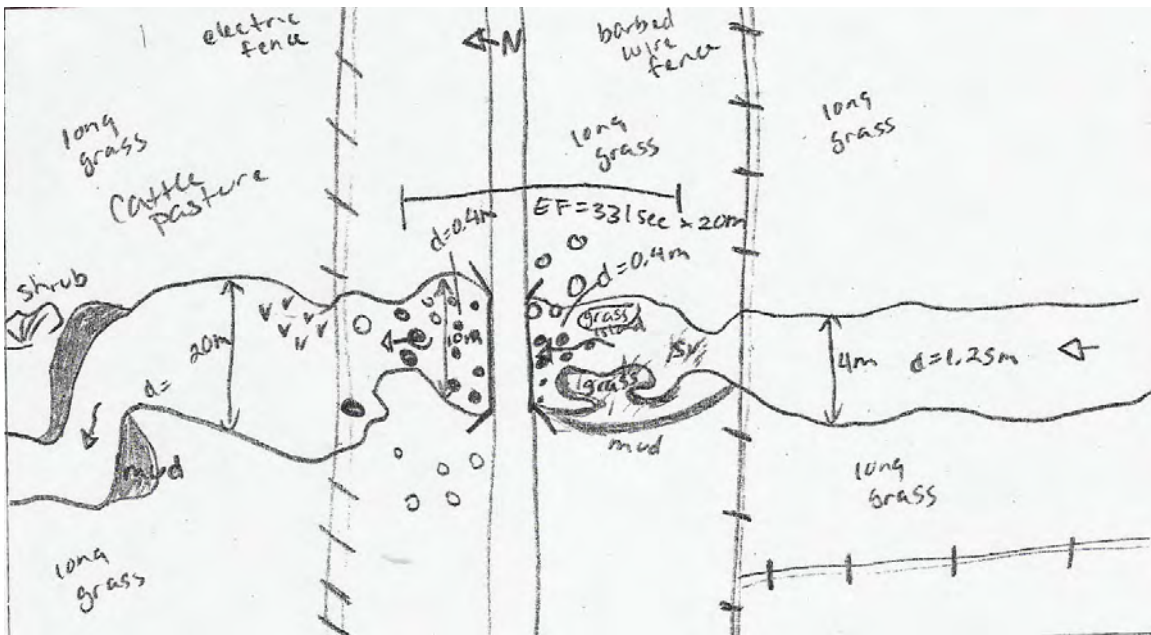 electric
fence
N
barbed
wire
fence
long
grass
cattle
pasture
long
grass
long
grass
EF=331sec x 20m
d=0.4m
d=0.4m
shrub
20m
10m
grass
island
SV
grass
4m d=1.25m
d=
mud
mud
long
grass
long
grass